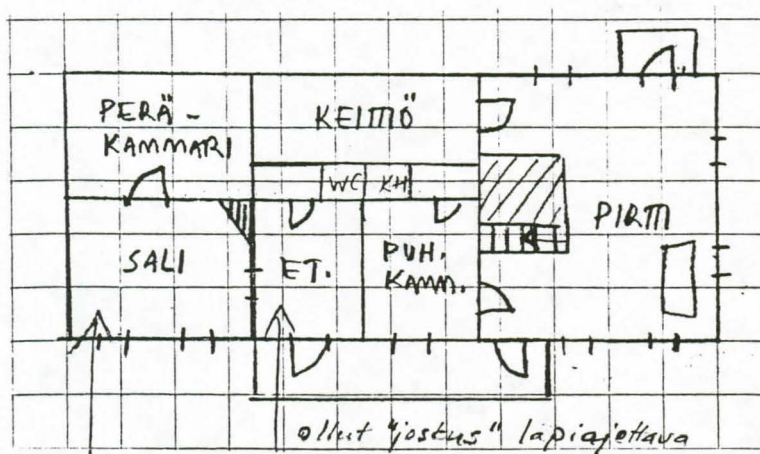 PERÄ-
KAMMARI
KEITTIÖ
WC
KH
PIRTTI
SALI
ET.
PUH.
KAMM.
ollut "jostus" läpiajettava